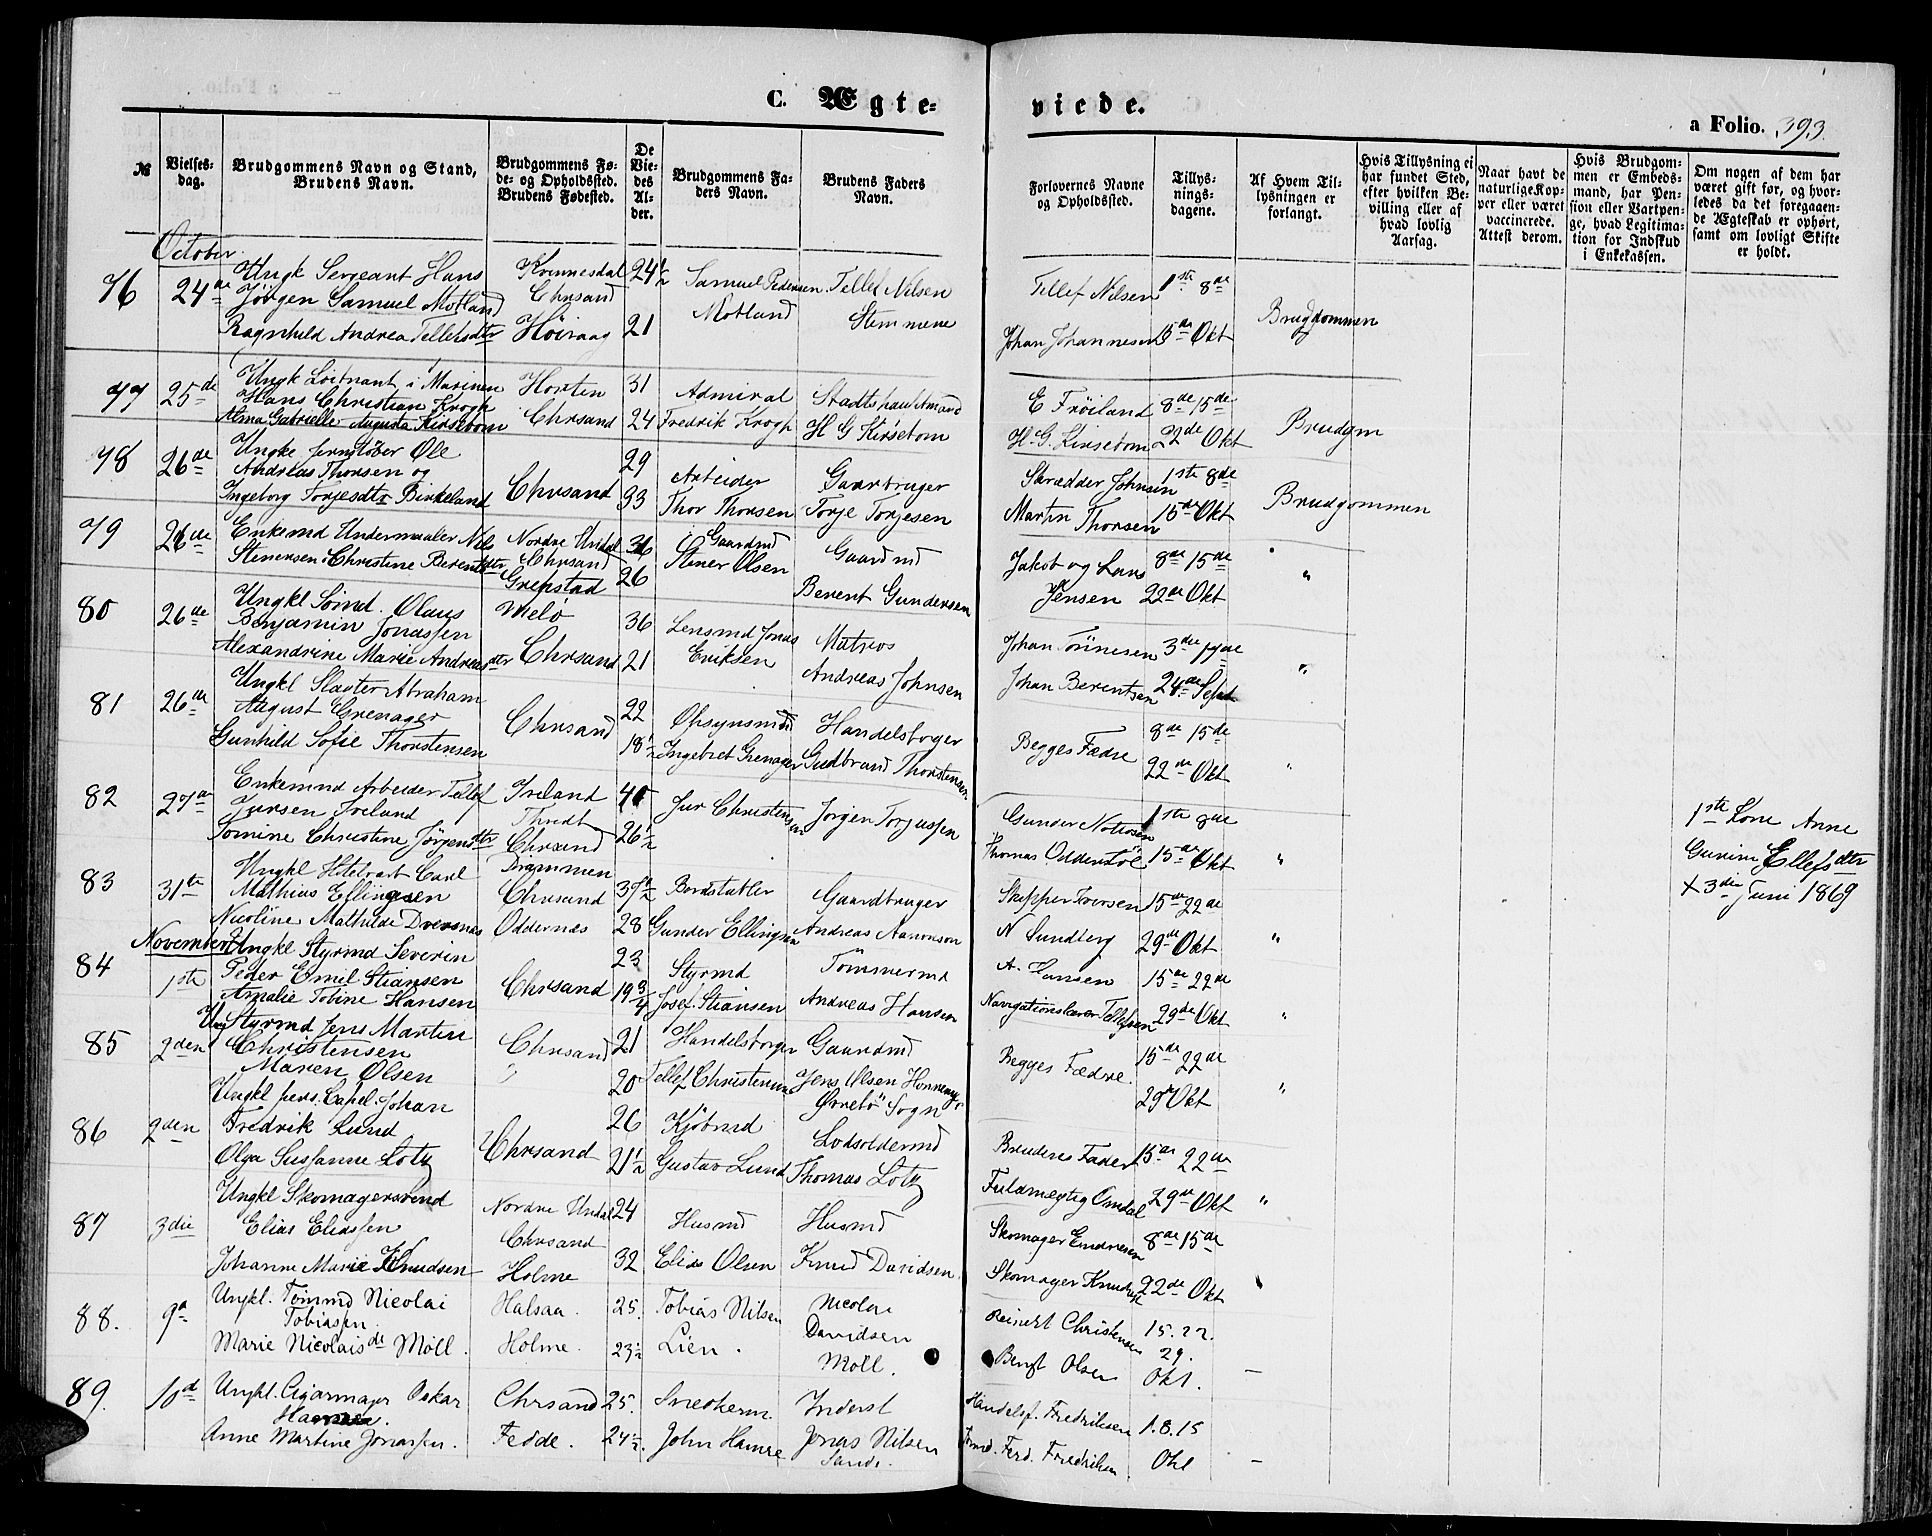 C. Ægte-
viede.
a Folio. 393.
№
Vielses-
dag.
Brudgommens Navn og Stand,
Brudens Navn.
Brudgommens Fø-
de- og Opholdssted.
Brudens Fødested.
De
Vie-
des
Al-
der.
Brudgommens Fa-
ders Navn.
Brudens Faders
Navn.
Forlovernes Navne
og Opholdssted.
Tillys-
nings-
dagene.
Af Hvem Til-
lysningen er
forlangt.
Hvis Tillysning ei
har fundet Sted,
efter hvilken Be-
villing eller af
hvad lovlig
Aarsag.
Naar havt de
naturlige Kop-
per eller været
vaccinerede.
Attest derom.
Hvis Brudgom-
men er Embeds-
mand, har Pen-
sion eller Vartpen-
ge, hvad Legitima-
tion for Indskud
i Enkekassen.
Om nogen af dem har
været gift før, og hvor-
ledes da det foregaaen-
de Ægteskab er ophørt,
samt om lovligt Skifte
er holdt.
October
76 24de Ungk Sergeant Hans Kvinnesdal 24½ Samuel Pedersen Tellef Nilsen Tellef Nilsen 1ste 8de
Jörgen Samuel Motland Chrsand Motland Stemmene Brudgommen
Ragnhild Andrea Tellefsdtr Höiraag 21 Johan Johannesen 15de Okt
77 25de Ungk Loitnant i Marinen Horten 31 Admiral Stadtshauptmand E Fröiland 8de 15de
Hans Christian Krogh Brudgm
Alma Gabrielle Augusta Kirsebom Chrsand 24 Fredrik Krogh H G Kirsebom H. G. Kirsebom 22de Okt
78 26de Ungke Ole 29 Arbeider Gaarbruger Skrædder Johnsen 1ste 8de
Andreas Thorsen og Chrsand Brudgommen
Ingeborg Torjesdtr Birkeland 33 Thor Thorsen Torje Torjesen Martin Thorsen 15de Okt
79 26de Enkemd Undermaaler Nils Nordre Undal 36 Gaardmd Gaardmd Jakob og Lars 8de 15de "
Stenersen Chrsand Stener Olsen
Christine Berentsdtr Grimstad 26 Berent Gundersen Jensen 22de Okt
80 26de Ungkl Sömd. Olaus Melö 36 Lensmd Jonas Matros Johan Tönnesen 3die 17de "
Benjamin Jonassen Eriksen
Alexandrine Marie Andreasdtr Chrsand 21 Andreas Johnsen Johan Berentsen 24de Sept
81 26de Ungkl Slagter Abraham 22 Opsynsmd Handelsborger Begges Fædre 8de 15de "
August Grenager Chrsand
Gunhild Sofie Thorstensen 18½ Ingebret Grenager Gudbrand Thorstensen 22de Okt
82 27de Enkemnd Arbeider Tellef Ireland 40 Jur Christensen Jörgen Torjussen Gunder 1ste 8de 1ste Kone Anne
Jursen Ireland Thvedt Gurine Ellefsdtr
Tomine Christine Jörgensdtr Chrsand 26½ Thomas Odderstöl 15de Okt " + 3die Juni 1869
83 31te Ungkl Carl Drammen 37½ Bordstabler Gaardbruger Skipper Iversen 15de 22de
Mathias Ellingsen Chrsand "
Nicoline Mathilde Oddernæs 28 Gunder Ellingsen Andreas Aanonsen N Sundberg 29de Okt
November
84 1ste Ungkl Styrmd Severin 23 Styrmd Tömmermd A. Hansen 15de 22de
Peder Emil Stiansen Chrsand
Amalie Tobine Hansen 19¾ Josef Stiansen Andreas Hansen Navigationslærer Tellefsen 29de Okt "
85 2den Ung Styrmd Jens Martin Chrsand 21 Handelsborger Gaardmd Begges Fædre 15de 22de
Christensen
Maren Olsen " 20 Tellef Christensen Jens Olsen Honnemyr 29de Okt "
Övrebö Sogn
86 2den Ungkl pers. Capel. Johan 26 Kjöbmd Lodsoldermd Brudens Fader 15de 22de
Fredrik Lund Chrsand
Olga Sussanne Lotz 21½ Gustav Lund Thomas Lotz Fuldmegtig Omdal 29de Okt "
87 3die Ungkl Skomagersvend Nordre Undal 24 Husmd Husmd Skomager Endresen 8de 15de
Elias Eliassen Chrsand
Johanne Marie Knudsen Holme 32 Elias Olsen Knud Davidsen Skomager Knudsen 22de Okt "
88. 9de Ungkl. Tömmd Nicolai Halsaa. 25. Tobias Nilsen Nicolai Reinert Christensen 15. 22.
Tobiasen Davidsen 29.
Marie Nicolaisde Möll. Holme. 23½ Lien. Möll. Bengt Olsen Okt. –
89. 10de Ungkl. Cigarmager Oskar Chrsand 25. Snedkerm Inderst Handelsf. Fredriksen 1.8.15
Hamre.
Anne Martine Jonassen. Fedde. 24½. John Hamre Jonas Nilsen Ferd. Fredriksen Okt –
Sande.